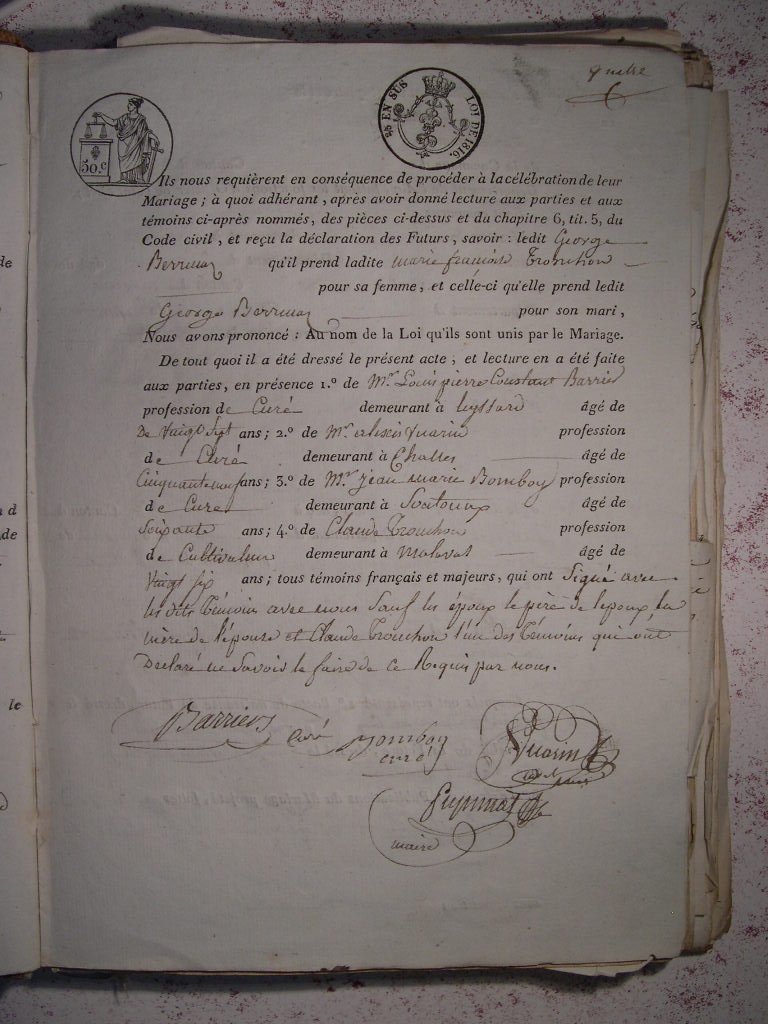 quatre
25 EN SUS LOI DE 1816.
50.c
Ils nous requièrent en conséquence de procéder à la célébration de leur
Mariage ; à quoi adhérant, après avoir donné lecture aux parties et aux
témoins ci-après nommés, des pièces ci-dessus et du chapitre 6, tit. 5, du
Code civil, et reçu la déclaration des Futurs, savoir : ledit George
qu'il prend ladite marie françoise Tronchon
pour sa femme, et celle-ci qu'elle prend ledit
George pour son mari,
Nous avons prononcé : Au nom de la Loi qu'ils sont unis par le Mariage.
De tout quoi il a été dressé le présent acte, et lecture en a été faite
aux parties, en présence 1.º de Mr. Louis pierre Constant Barrier
profession de Curé demeurant à leyssard âgé de
De Vaingt Sept ans ; 2.º de Mr. alexis Vuarin profession
de Curé demeurant à Challes âgé de
Cinquante neuf ans ; 3.º de Mr. jean marie Bomboy profession
de Cure demeurant à âgé de
Soixante ans ; 4.º de Claude Tronchon profession
de Cultivateur demeurant à Malaval âgé de
Vingt six ans ; tous témoins français et majeurs, qui ont Signé avec
les dits Témoins avec nous Sauf les époux le père de lepoux, la
mère de lépouse et Claude Tronchon l'un des Témoins qui ont
Declaré ne Savoir le faire de ce Requis par nous.
Barriers curé
Bomboy
curé
Vuarin
maire
de
d
de
le